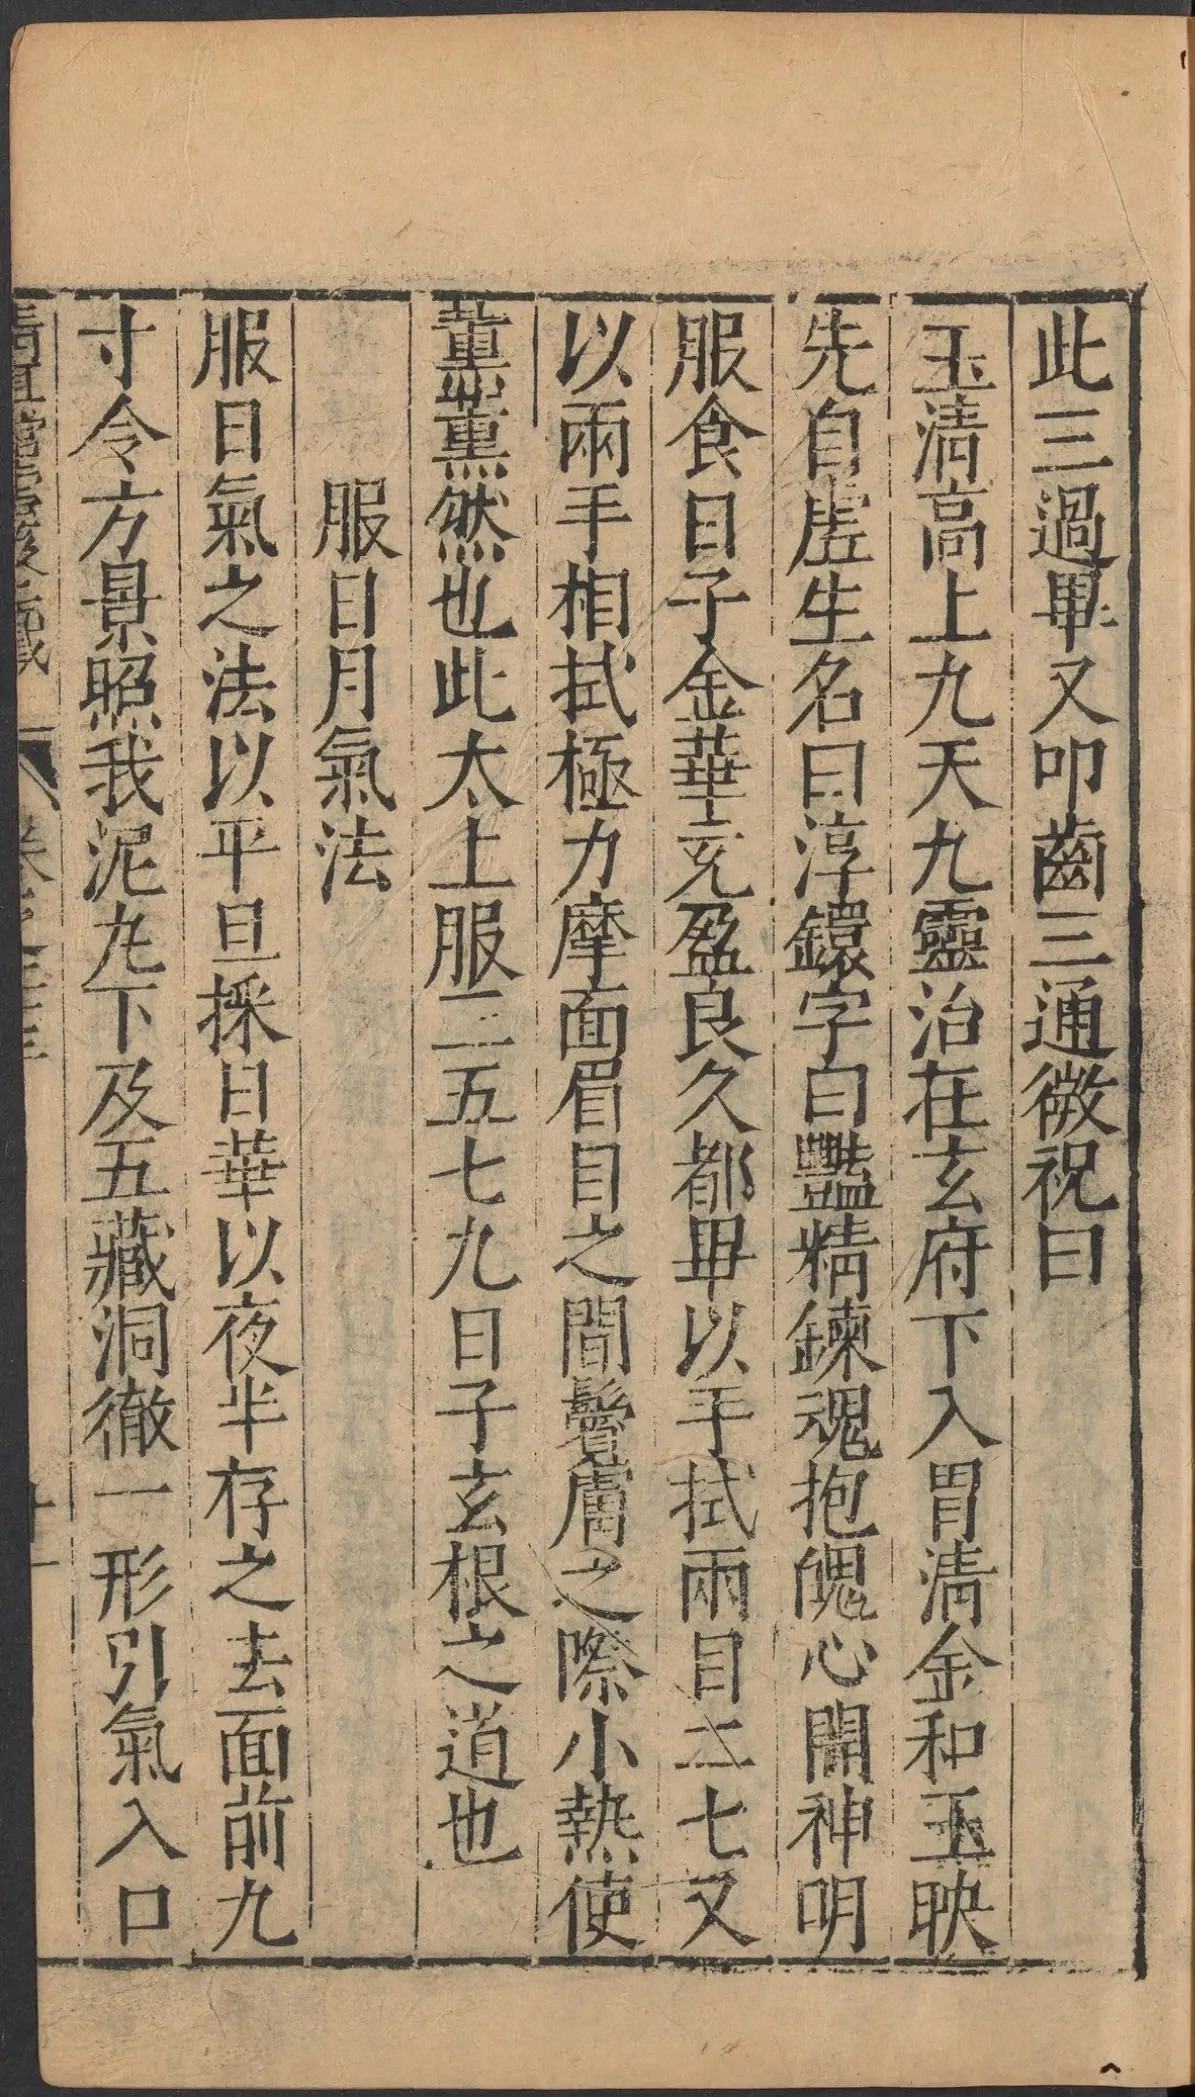 此三過畢又叩齒三通微祝曰
玉清高上九天九靈治在玄府下入胃清金和玉映
先自虗生名曰淳鐶字曰豔精鍊魂抱魄心開神明
服食日子金華充盈良久都畢以手拭兩目二七又
以兩手相拭極力摩面眉目之間鬢膚之際小熱使
薰薰然也此太上服三五七九日子玄根之道也
服日月氣法
服日氣之法以平旦採日華以夜半存之去面前九
寸令方景照我泥丸下及五藏洞徹一形引氣入口